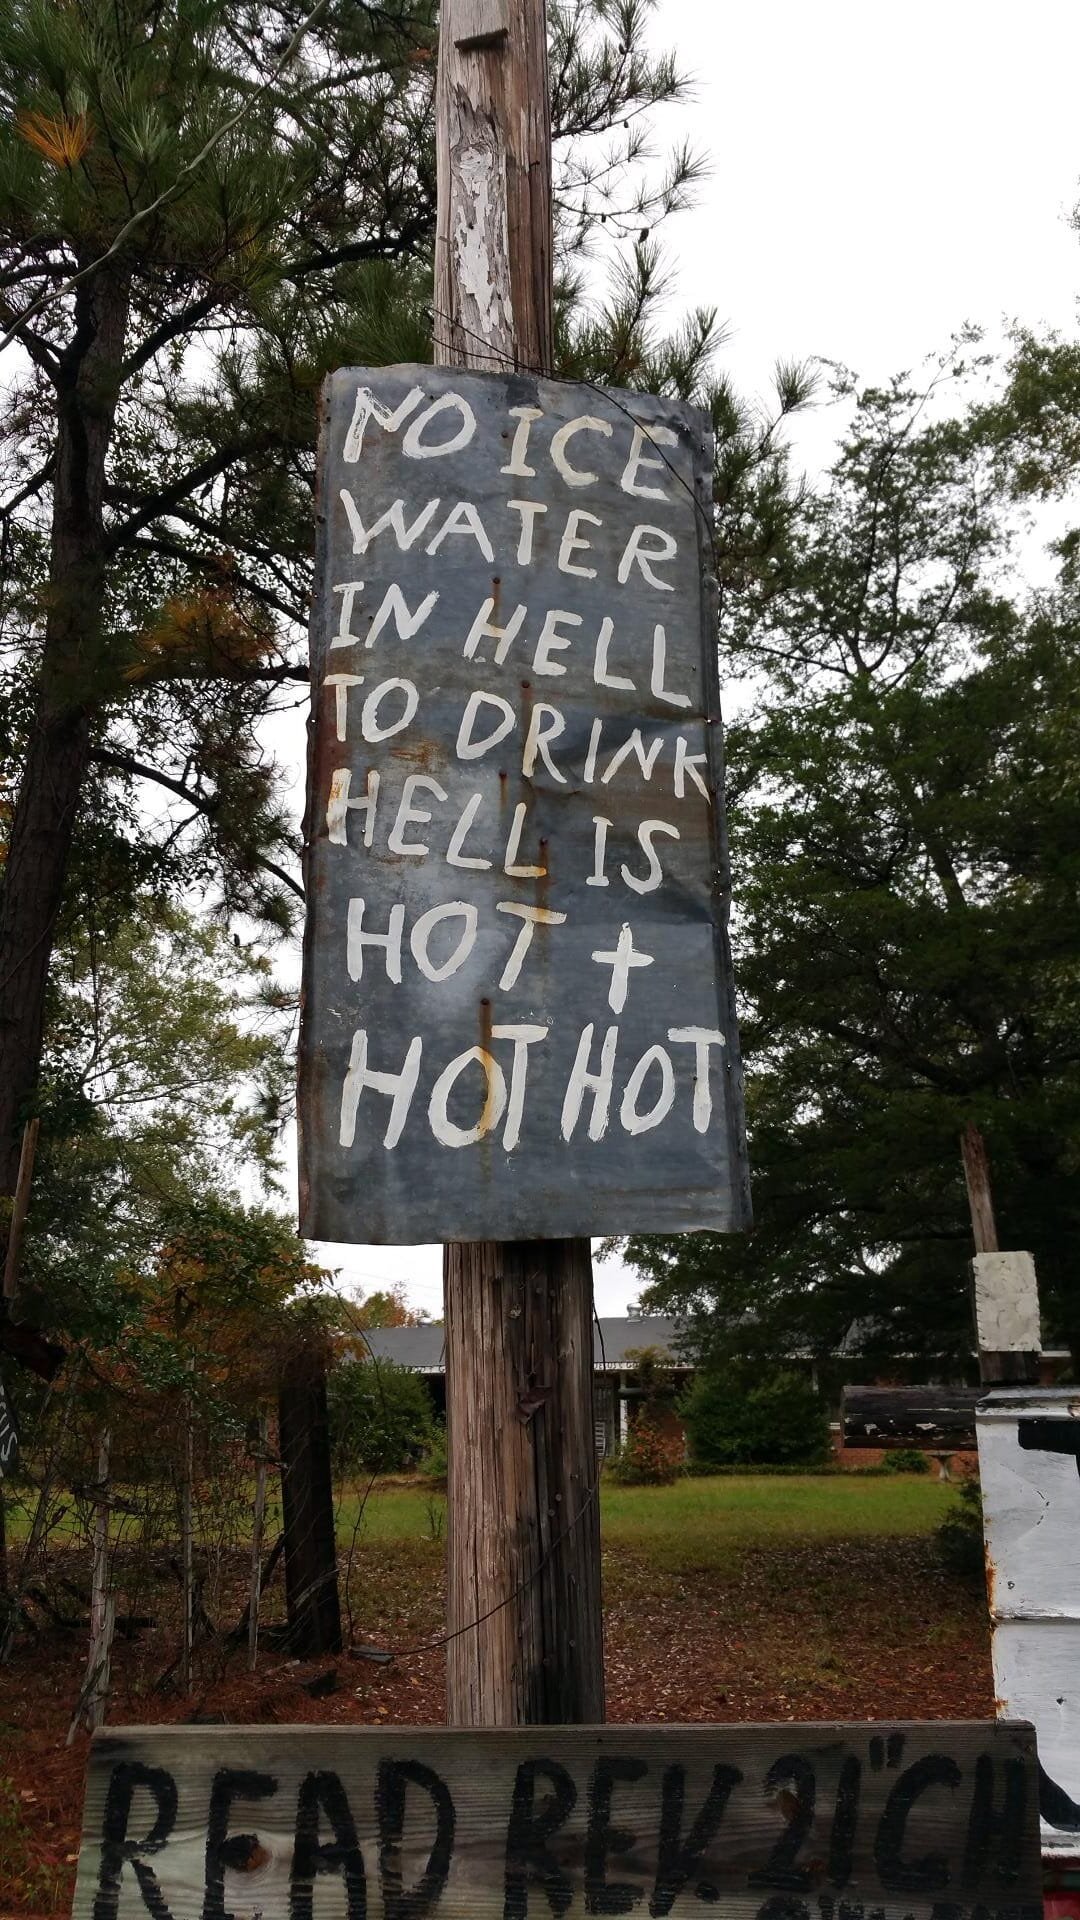 NO ICE
WATER
IN HELL
TO DRINK
HELL IS
HOT +
HOT HOT
READ REV. 21" CH